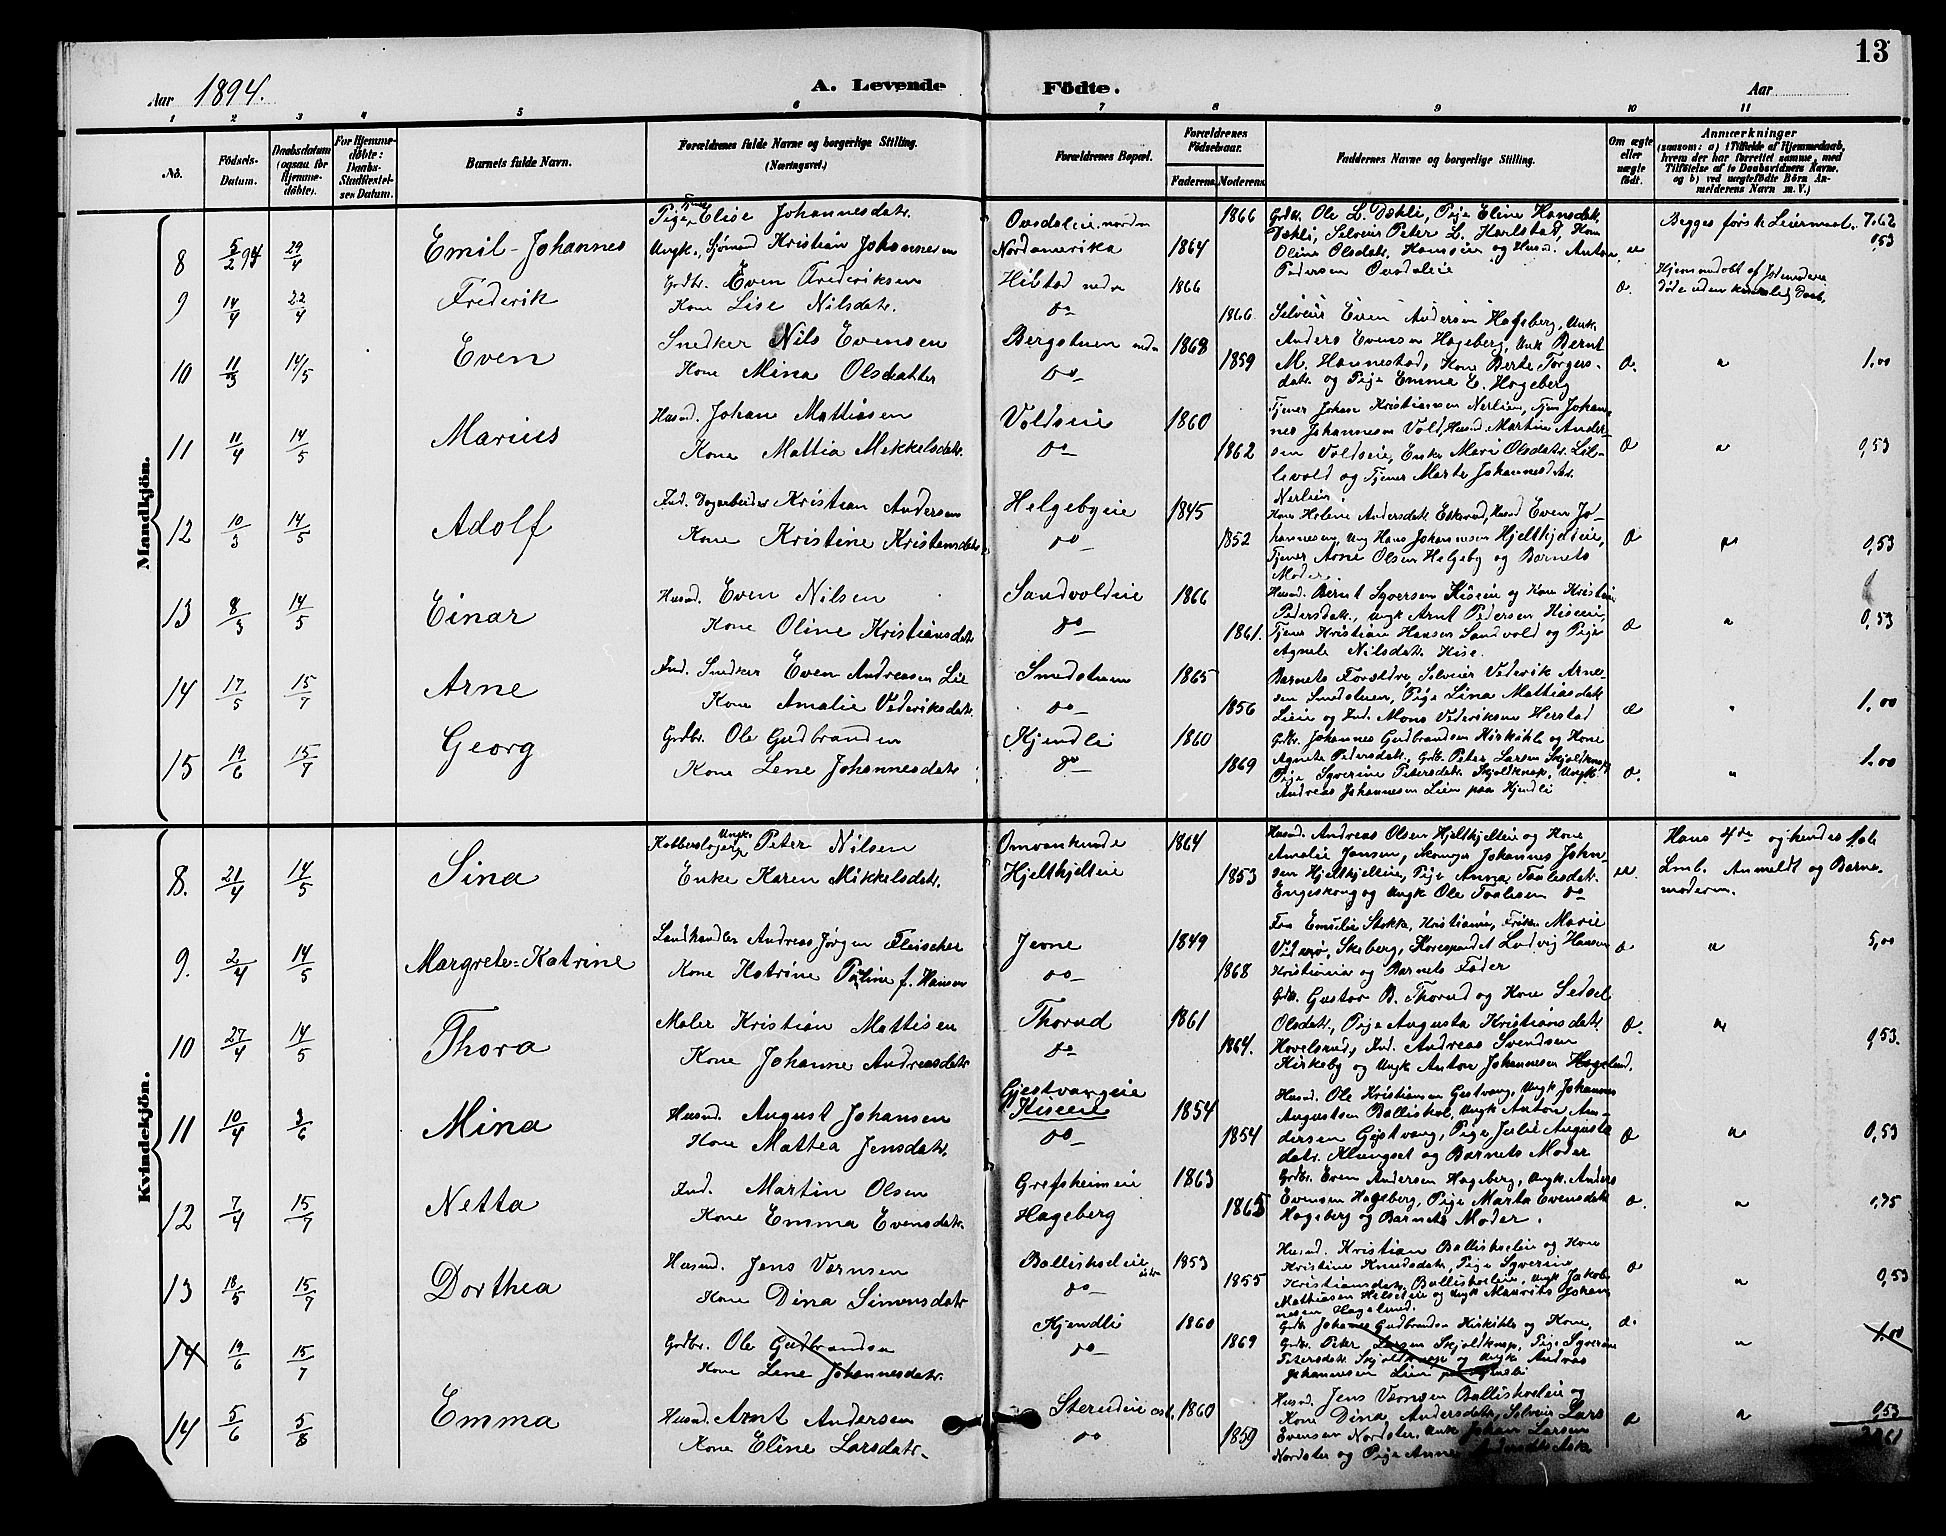 13
Aar 1894. A. Levende Födte. Aar
1 2 3 4 5 6 7 8 9 10 11
No.
Födsels-Datum.
Daabsdatum (ogsaa for Hjemmedöbte).
For Hjemmedöbte: Daabs-Stadfæstelses Datum.
Barnets fulde Navn.
Forældrenes fulde Navne og borgerlige Stilling. (Næringsvei.)
Forældrenes Bopæl.
Forældrenes Födselsaar.
Faderens. Moderens.
Faddernes Navne og borgerlige Stilling.
Om ægte eller uægte födt.
Anmærkninger
(saasom: a) i Tilfælde af Hjemmedaab,
hvem der har forrettet samme, med
Tilföielse af to Daabsvidners Navne,
og b) ved uægtefödte Börn An-
melderens Navn m. V.)
Mandkjön.
8 5/2 94 29/4 Emil-Johannes
Pige Elise Johannesdatr.
Ungk., Sjömand Kristian Johannesen
Ovsdaleie nedre
Nordamerika 1864 1866
Grdbr. Ole L. Dæhli, Pige Eline Hansdatr.
Dæhli, Selveier Peter L. Harlstad, Kone
Oline Olsdatr. Hansseie og Husmd. Anton
Pedersen Ovsdaleie
Begges förste Leiermaal. 7.62
0,53
9 14/4 22/4 Frederik
Grdbr. Even Frederiksen
Kone Lise Nilsdatr.
Hilstad nedre 1866
do 1866
Hjemmedöbt af Jordemoderen
döde uden kirkelig Daab.
10 11/3 14/5 Even
Snedker Nils Evensen
Kone Mina Olsdatter
Bergstuen nedre 1868
do 1859
Selveier Even Andersen Hageberg, Ungk.
Anders Evensen Hageberg, Ungk Bernt
M. Hannestad, Kone Berte Torgers-
datr. og Pige Emma E. Hageberg
" 1.00
11 11/4 14/5 Marius
Husmd. Johan Mattiasen
Kone Mattia Mikkelsdatr.
Voldseie 1860
do 1862
Tjener Johan Kristiansen Nerlien, Tjen Johan-
nes Johannesen Vold, Husmd. Martin Ander-
sen Voldseie, Enke Mari Olsdatr. Lil-
levold og Tjener Marte Johannesdatr.
Nerlien.
" 0,53
12 10/3 14/5 Adolf
Ind. Dagarbeider Kristian Andersen
Kone Kristine Kristiansdatr
Helgebyeie 1845
do 1852
Kone Helene Andersdatr. Eskerud, Husmd Even Jo-
hannesen, Ung Hans Johannesen Hjelthjelteie,
Tjener Arne Olsen Helgeby og Barnets
Moder.
" 0,53
13 8/3 14/5 Einar
Husmd. Even Nilsen
Kone Oline Kristiansdatr
Sandvoldeie 1866
do 1861.
Husmd. Bernt Syversen Hiseeie og Kone Kristine
Pedersdatr., Ungk Arnt Pedersen Hiseeie,
Tjener Kristian Hansen Sandvold og Pige
Agnete Nilsdatr. Hise.
" 0,53
14 17/5 15/7 Arne
Ind. Snedker Even Andreasen Lie
Kone Amalie Vederiksdatr.
Smedstuen 1865
do 1856
Barnets Forældre, Selveier Vederik Arne-
sen Smedstuen, Pige Lina Mathiasdatr.
Lieie og Ind. Mons Vederiksen Herstad
" 1.00
15 19/6 15/7 Georg
Grdbr. Ole Gudbrandsen
Kone Lene Johannesdatr
Kjendli 1860
do 1869
Grdbr. Johannes Gudbrandsen Hiskihle og Kone
Agnete Pedersdatr., Grdb. Peter Larsen Skjoldknap
Pige Syverine Petersdatr. Skjoldknap, Ungk
Andreas Johannesen Lien paa Kjendli
" 1.00
Kvindekjön.
8. 21/4 14/5 Sina
Kobberslager Ungk. Peter Nilsen
Enke Karen Mikkelsdatr.
Omvankende 1864
Hjelthjelteie 1853
Husmd. Andreas Olsen Hjelthjelteie og Kone
Amalie Jansen, Skomager Johannes John-
sen Hjelthjelteie, Pige Anna Paulsdatr.
Engeskong og Ungk Ole Paulsen do
Hans 4de og hendes 1ste
Lmb. Anmeldt og Barne-
moderen.
9. 2/4 14/5 Margrete=Katrine
Landhandler Andreas Jörgen Fleischer
Kone Katrine Pauline f. Hansen
Jevne 1849
do 1868
Fru Emilie Stokke, Kristiania, Fröken Marie
Vidarö, Skeberg, Korrespondet Ludvig Hansen
Kristiania og Barnets Fader
" 5,00
10 27/4 14/5 Thora
Maler Kristian Mattisen
Kone Johanne Andreasdatr
Thorud 1861
do 1864.
Grdb. Gustav B. Thorud og Kone Sedsel
Olsdatr., Pige Augusta Kristiansdatr.
Hovelsrud, Ind. Andreas Svendsen
Kirkeby og Ungk Anton Johannesen Hagelund.
" 0,53.
11 10/4 3/6 Mina
Husmd. August Johansen
Kone Mattea Jensdatr.
Gjestvangeie
Kiseeie 1854
do 1854
Husmd. Ole Kristiansen Gestvang, Ungk Johannes
Augustsen Balliskol, Ungk Anton An-
dersen Gjestvang, Pige Julie Augusta
datr. Klungset og Barnets Moder
" 0,53
12 7/4 15/7 Netta
Ind. Martin Olsen
Kone Emma Evensdatr.
Grefsheimeie 1863
Hageberg 1865
Grdbr. Even Andersen Hageberg, Ungk. Anders
Evensen Hageberg, Pige Marta Evensdatr
Hageberg og Barnets Moder.
" 0,75
13 18/5 15/7 Dorthea
Husmd. Jens Vernsen
Kone Dina Simensdatr
Balliskoleie 1853
do 1855
Husmd. Kristian Balliskoleie og Kone
Kristine Knudsdatr, Pige Syverine
Kristiansdatr. Balliskoleie, Ungk Jakob
Mathiasen Helseteie og Ungk Maurits Johan-
nesen Hagelund.
" 0,53
14 19/6 15/7
Grdbr. Ole Gudbrandsen
Kone Lene Johannesdatr.
Kjendli 1860
do 1869
Grdbr. Johannes Gudbrandsen Hiskihle og Kone,
Grdbr. Peter Larsen Skjoldknap, Pige Syverine
Petersdatr Skjoldknap og Ungk Andreas
Johannesen Lien paa Kjendli
" 1.00
14 5/6 5/8 Emma
Husmd. Arnt Andersen
Kone Eline Larsdatr.
Sterudeie 1860
do 1859
Husmd. Jens Vernsen Balliskoleie og
Kone Dina Andersdatr, Selveier Lars
Evensen Nordster, Ungk Johan Larsen
Nordster og Pige Anne
" 0,53